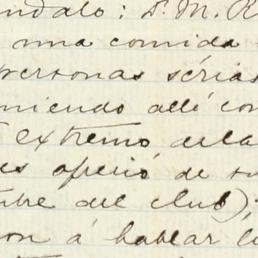 ndalo: S. M. R
una comida
personas serias
niendo allí con
extremo de la
es operió de su
bre del club);
on á hablar l